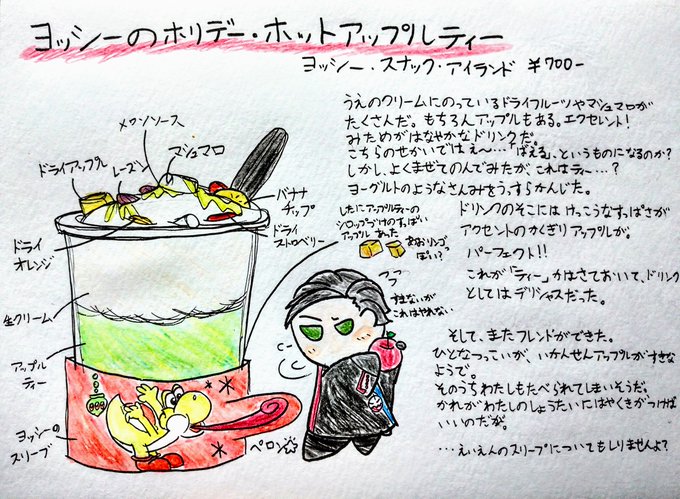 ヨッシーのホリデー・ホットアップルティー
ヨッシー・スナック・アイランド ¥700-
うえのクリームにのっているドライフルーツやマシュマロが
たくさんだ。もちろんアップルもある。エクセレント！
みためがはなやかなドリンクだ。
こちらのせかいではえ〜…「ばえる」、というものになるのか？
しかし、よくまぜてのんでみたが、これはティー…？
ヨーグルトのようなさんみをうっすらかんじた。
ドリンクのそこにはけっこうなすっぱさが
アクセントのかくぎりアップルが。
パーフェクト!!
これが「ティー」かはさておいて、ドリンク
としてはデリシャスだった。
そして、またフレンドができた。
ひとなつっこいが、いかんせんアップルがすきな
ようで。
そのうちわたしもたべられてしまいそうだ。
かれがわたしのしょうたいにはやくきがつけば
いいのだが。
…えいえんのスリープについてもしりませんよ？
メロンソース
マシュマロ
ドライアップル
レーズン
バナナ
チップ
ドライ
ストロベリー
ドライ
オレンジ
生クリーム
アップル
ティー
ヨッシーの
スリーブ
したにアップルティーの
シロップづけのすっぱい
アップルあった
あおリンゴ
っぽい？
すまないが
これはやれない
ペロン